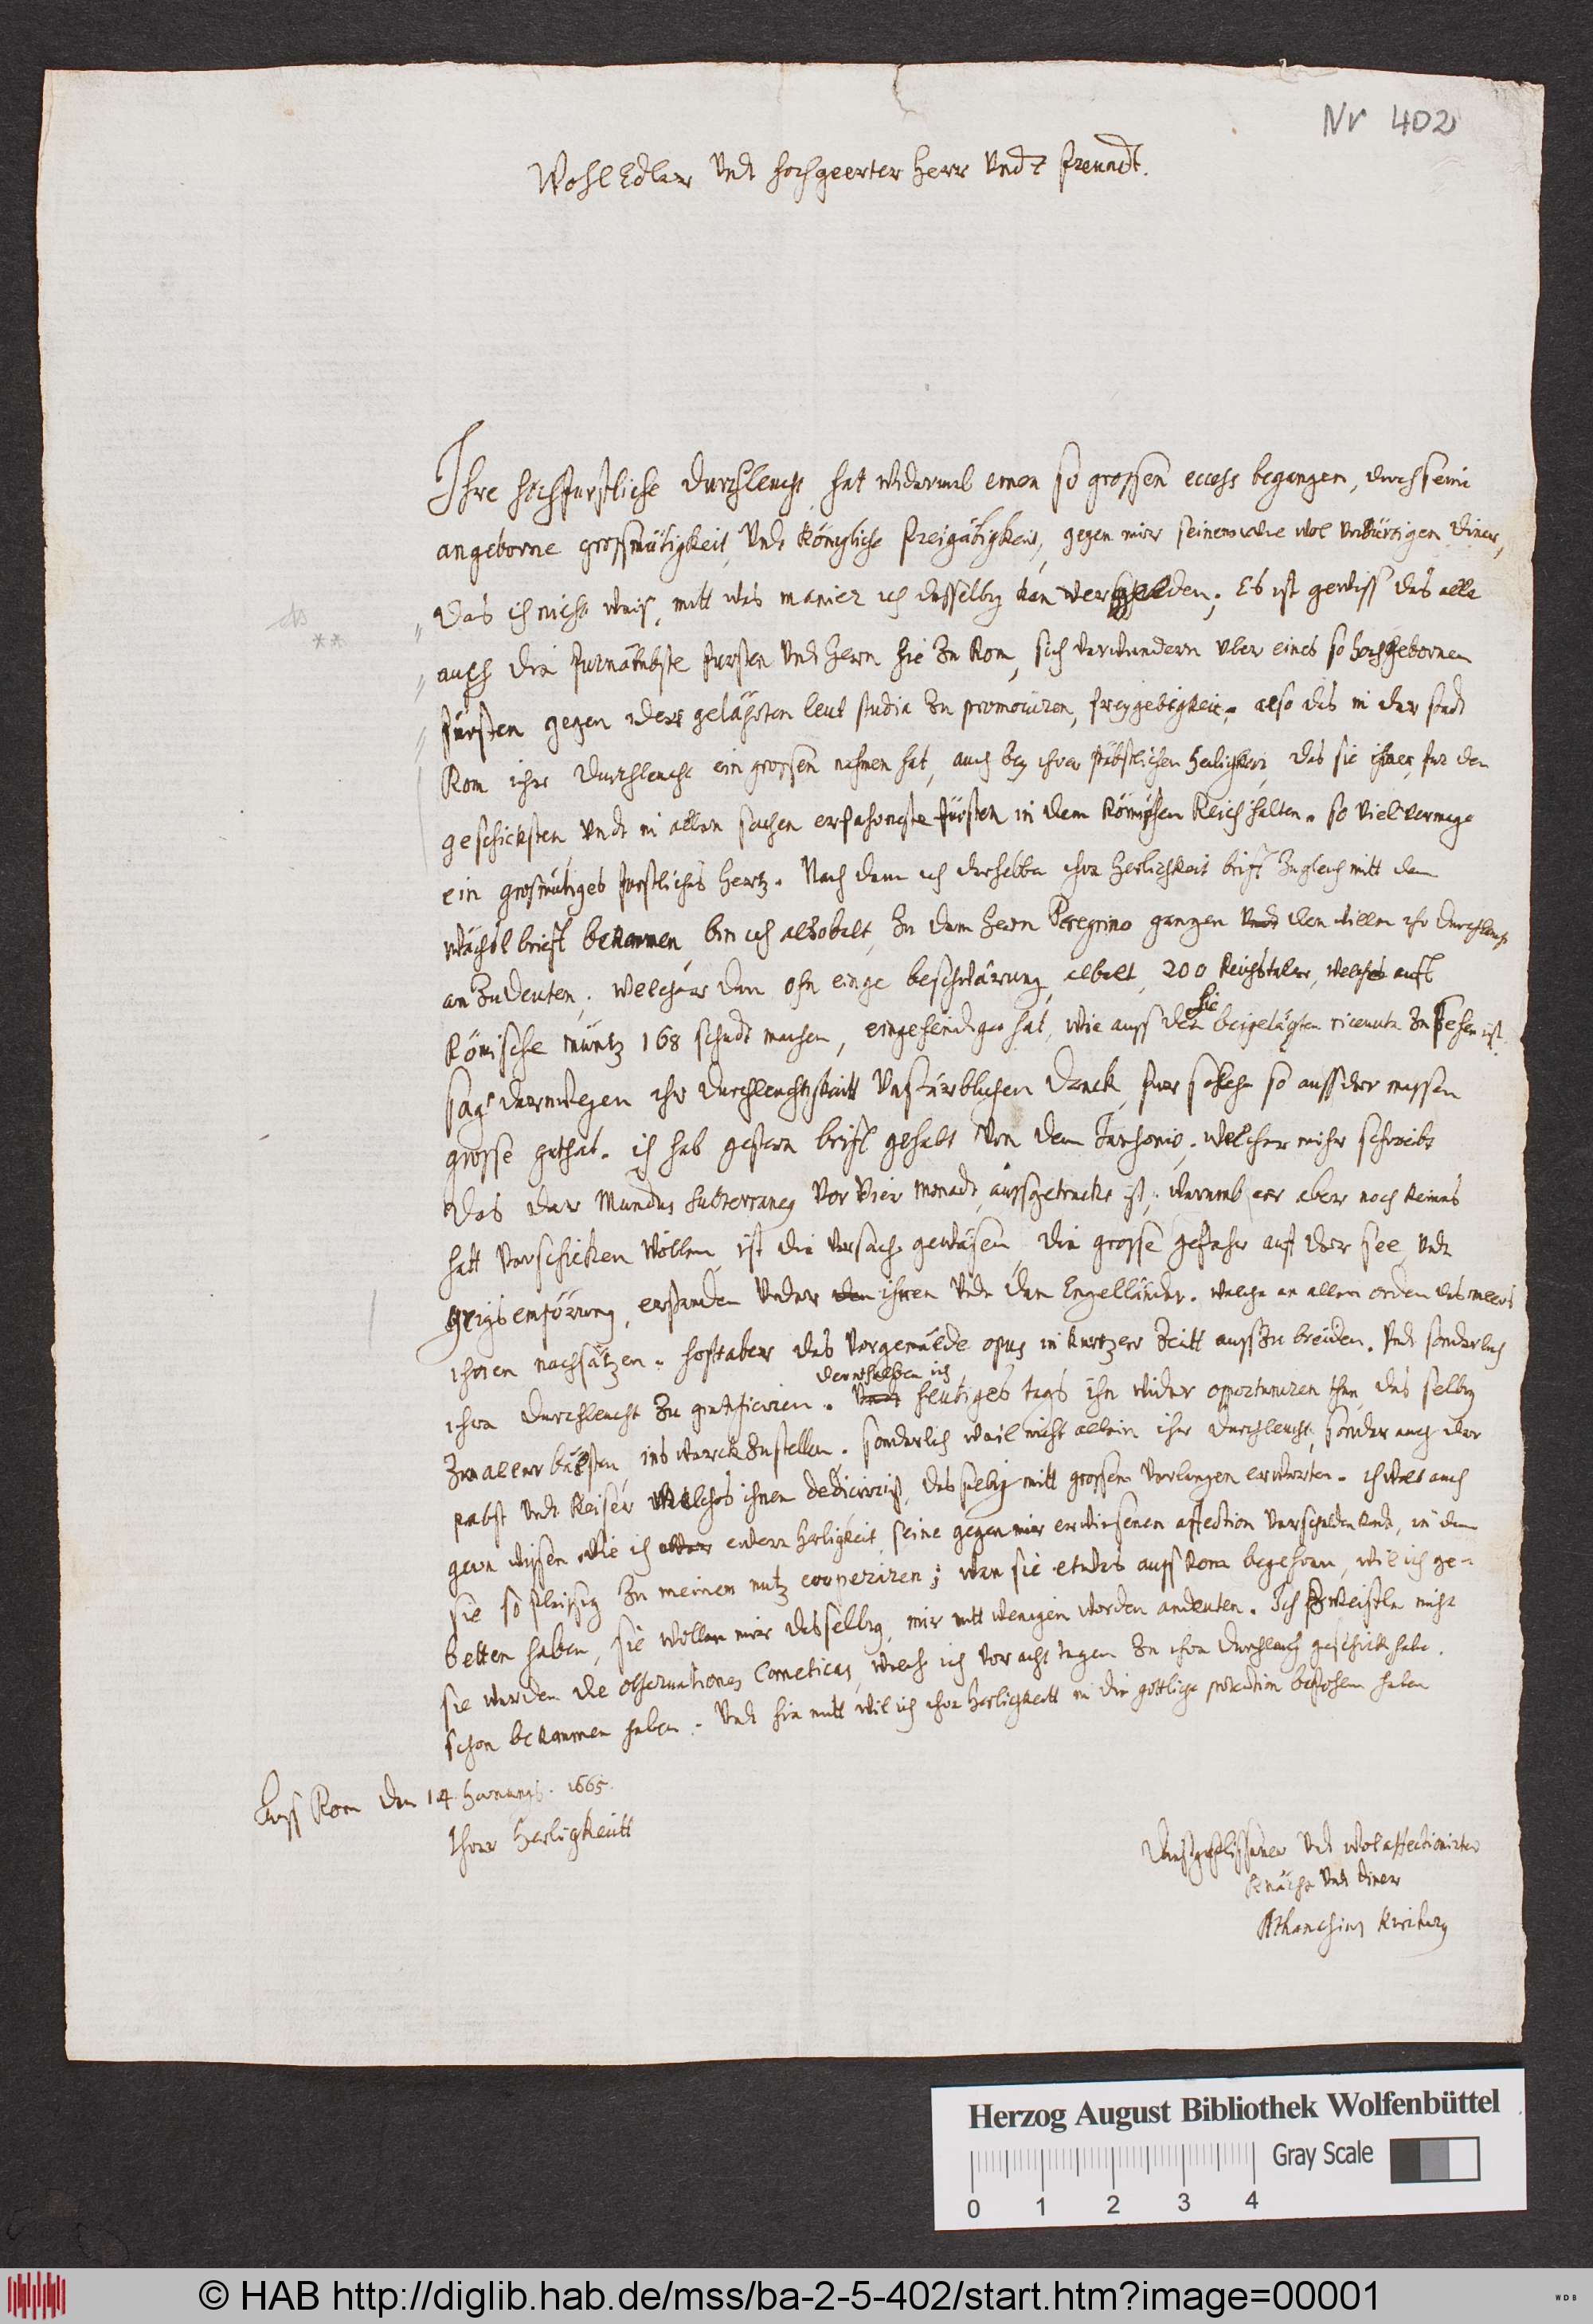 Nr 402
WohlEdler Undt hochgeerter Herr Undt freundt.
Ihre hochfurstliche Durchleucht hat widerumb einen so grossen eccess begangen, durch seine
angeborne grossmütigkeit, Undt Königliche freigäbigkeit, gegen mir seinem wol unwürdigen Diner,
Das ich nicht weis, mitt was manier ich dasselbig kan vergelden; Es ist gewiss das alle
auch die furnämbste fursten Undt Hern hie zu Rom, sich verwundern uber eines so hochgebornen
fürsten gegen der gelährten leut studia zu promoviren, freygebigkeit, also das in der stadt
Rom ihr Durchleucht ein grossen nahmen hat, auch bey ihrer päbstlichen Heiligkeit, das sie ihner fur den
geschicksten Undt in allen sachen erfahrngste fürsten in dem Römischen Reich halten. so viel vermage
ein grosmütiges furstliches Hertz. Nach dem ich derselben ihre Herlichkeit brift zugleich mitt dem
wächsl brieft bekommen, bin ich alsobalt, zu dem Hern Peregrino gangen den willen ihr Durchleucht
an zu Deuten, welcher dan ohn einge beschwärung, albalt, 200 Reichstaler, welches auft
Römische müntz 168 schudt machen, eingehendiget hat, wie auss der hie beigelägten ricevuta zu sehen ist.
sag derwegen ihr Durchleuchtikeitt Unsterblichen Danck, fur solche so aussder massen
grosse guthat. ich hab gestern brift gehabt Von dem Janssonio, welcher mihr schreibt
Das der Mundus Subterraneus vor vier Monadt, aussgetruckt ist, warumb err aber noch keines
hatt verschicken wöllen, ist die ursach gewäsen, die grosse gefahr auf der see, Undt
krigs empörung, erstanden under ihnen Undt den Engelländer, welche an allen orden des meers
ihnen nachsätzen. hoft aber das Vorgemälde opus in kurtzer Zeitt auss zu breiden. Undt sonderlich
ihre Durchleucht zu gratificieren. derenthalben ich heutiges tags ihn wider opportuniren thue, das selbig
zum aller bälsten ins werck zu stellen. sonderlich weil nicht allein ihr Durchleucht, sonder auch der
pabst Undt Keiser welches ihnen dedicirt ist, das selbig mitt grossem verlangen erwarten. ich wolt auch
gern wissen wie ich ewern Herligkeit, seine gegen mir erwisenen affection verschulden kont, in dem
sie so fleissig zu meinem nutz cooperiren; wan sie etwas auss Rom begehren, wil ich ge-
betten haben, sie wollen mir dasselbig, mir mitt wenigen worden andeuten. Ich zweifle nicht
sie werden die observationes Cometicas, welche ich vor acht tagen zu ihre Durchleuch geschickt habe,
schon bekommen haben. Undt hie mitt wil ich ihre Herligkeitt in die göttliche protection befohlen haben
Auss Rom den 14 Hornungs. 1665.
Ihrer Herligkeitt
Dinstgeflissner Undt wol affectionirter
Knächt Undt Diner
Athanasius Kircherus
Herzog August Bibliothek Wolfenbüttel
Gray Scale
0 1 2 3 4
© HAB http://diglib.hab.de/mss/ba-2-5-402/start.htm?image=00001
WDB